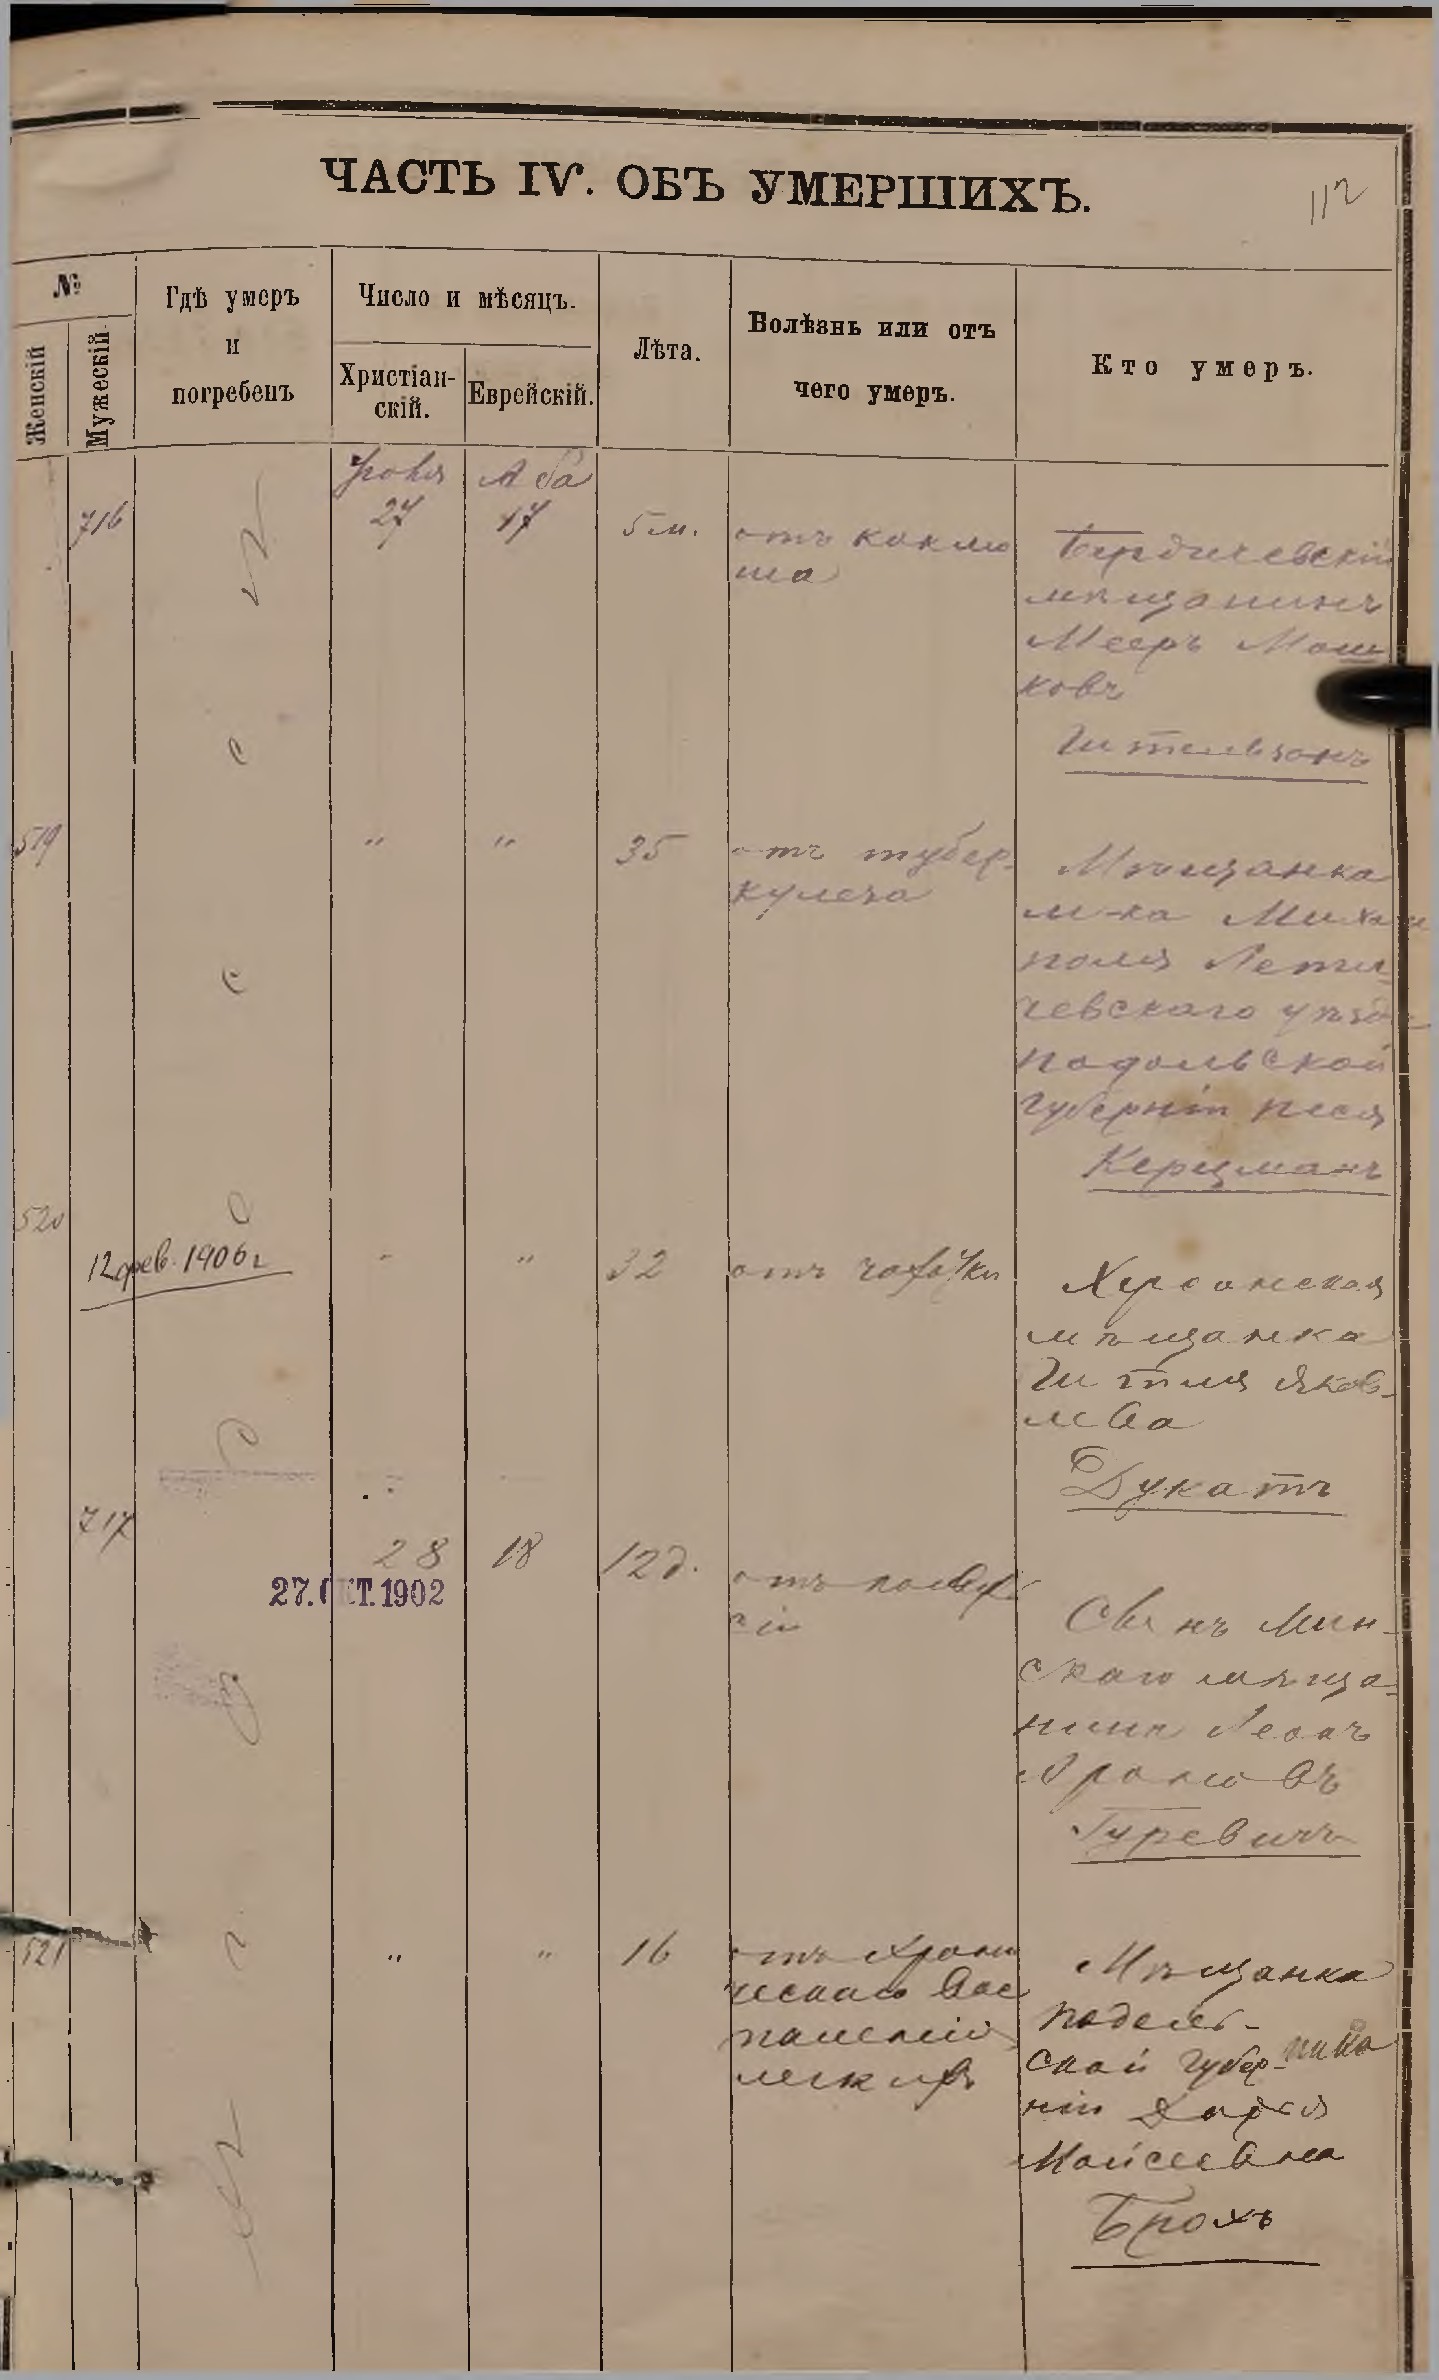 ЧАСТЬ IV. ОБЪ УМЕРШИХЪ.
112
№
Женскій
Мужескій
Гдѣ умеръ
и
погребенъ
Число и мѣсяцъ.
Христіан-
скій.
Еврейскій.
Лѣта.
Болѣзнь или отъ
чего умеръ.
Кто умеръ.
Аба
716
27
17
5 м.
отъ коклю
ша
Бердичевскій
мѣщанинъ
Мееръ Мош
ковъ
519
"
"
35
отъ тубер-
кулеза
Мѣщанка
м-ка Миха
поля Лети
чевскаго уѣзда
Подольской
губерніи Песя
Керцманъ
520
12 фев. 1906 г
"
"
32
отъ чахотки
Херсонская
мѣщанка
Шитля Яков-
лева
Дукатъ
717
28
18
12 д.
27. ОКТ. 1902
отъ
Сынъ Мин-
скаго мѣща-
нина Леонъ
Ароновъ
Гуревичъ
521
"
"
16
отъ Хрони
ческаго Вос
паленія
легкихъ
Мѣщанка
Подоль-
ской губер-
ніи
Моисеевна
Брохъ